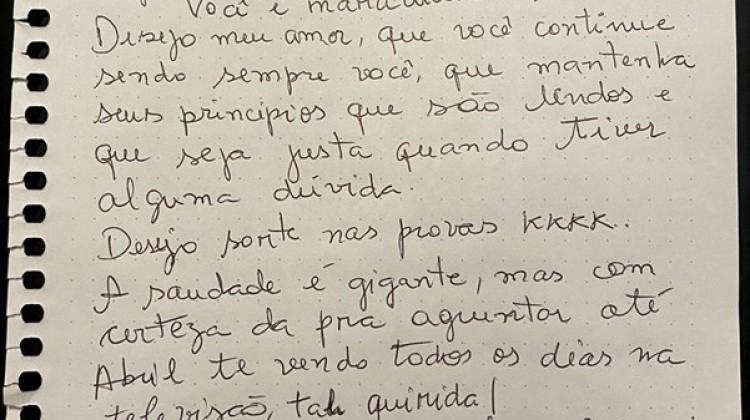 Você é maravilhosa
Desejo meu amor, que você continue
sendo sempre você, que mantenha
seus principios que são lindos e
que seja justa quando tiver
alguma dúvida.
Desejo sorte nas provas kkkk..
A saudade é gigante, mas com
certeza da pra aguentar até
Abril te vendo todos os dias na
televisão, tah querida!